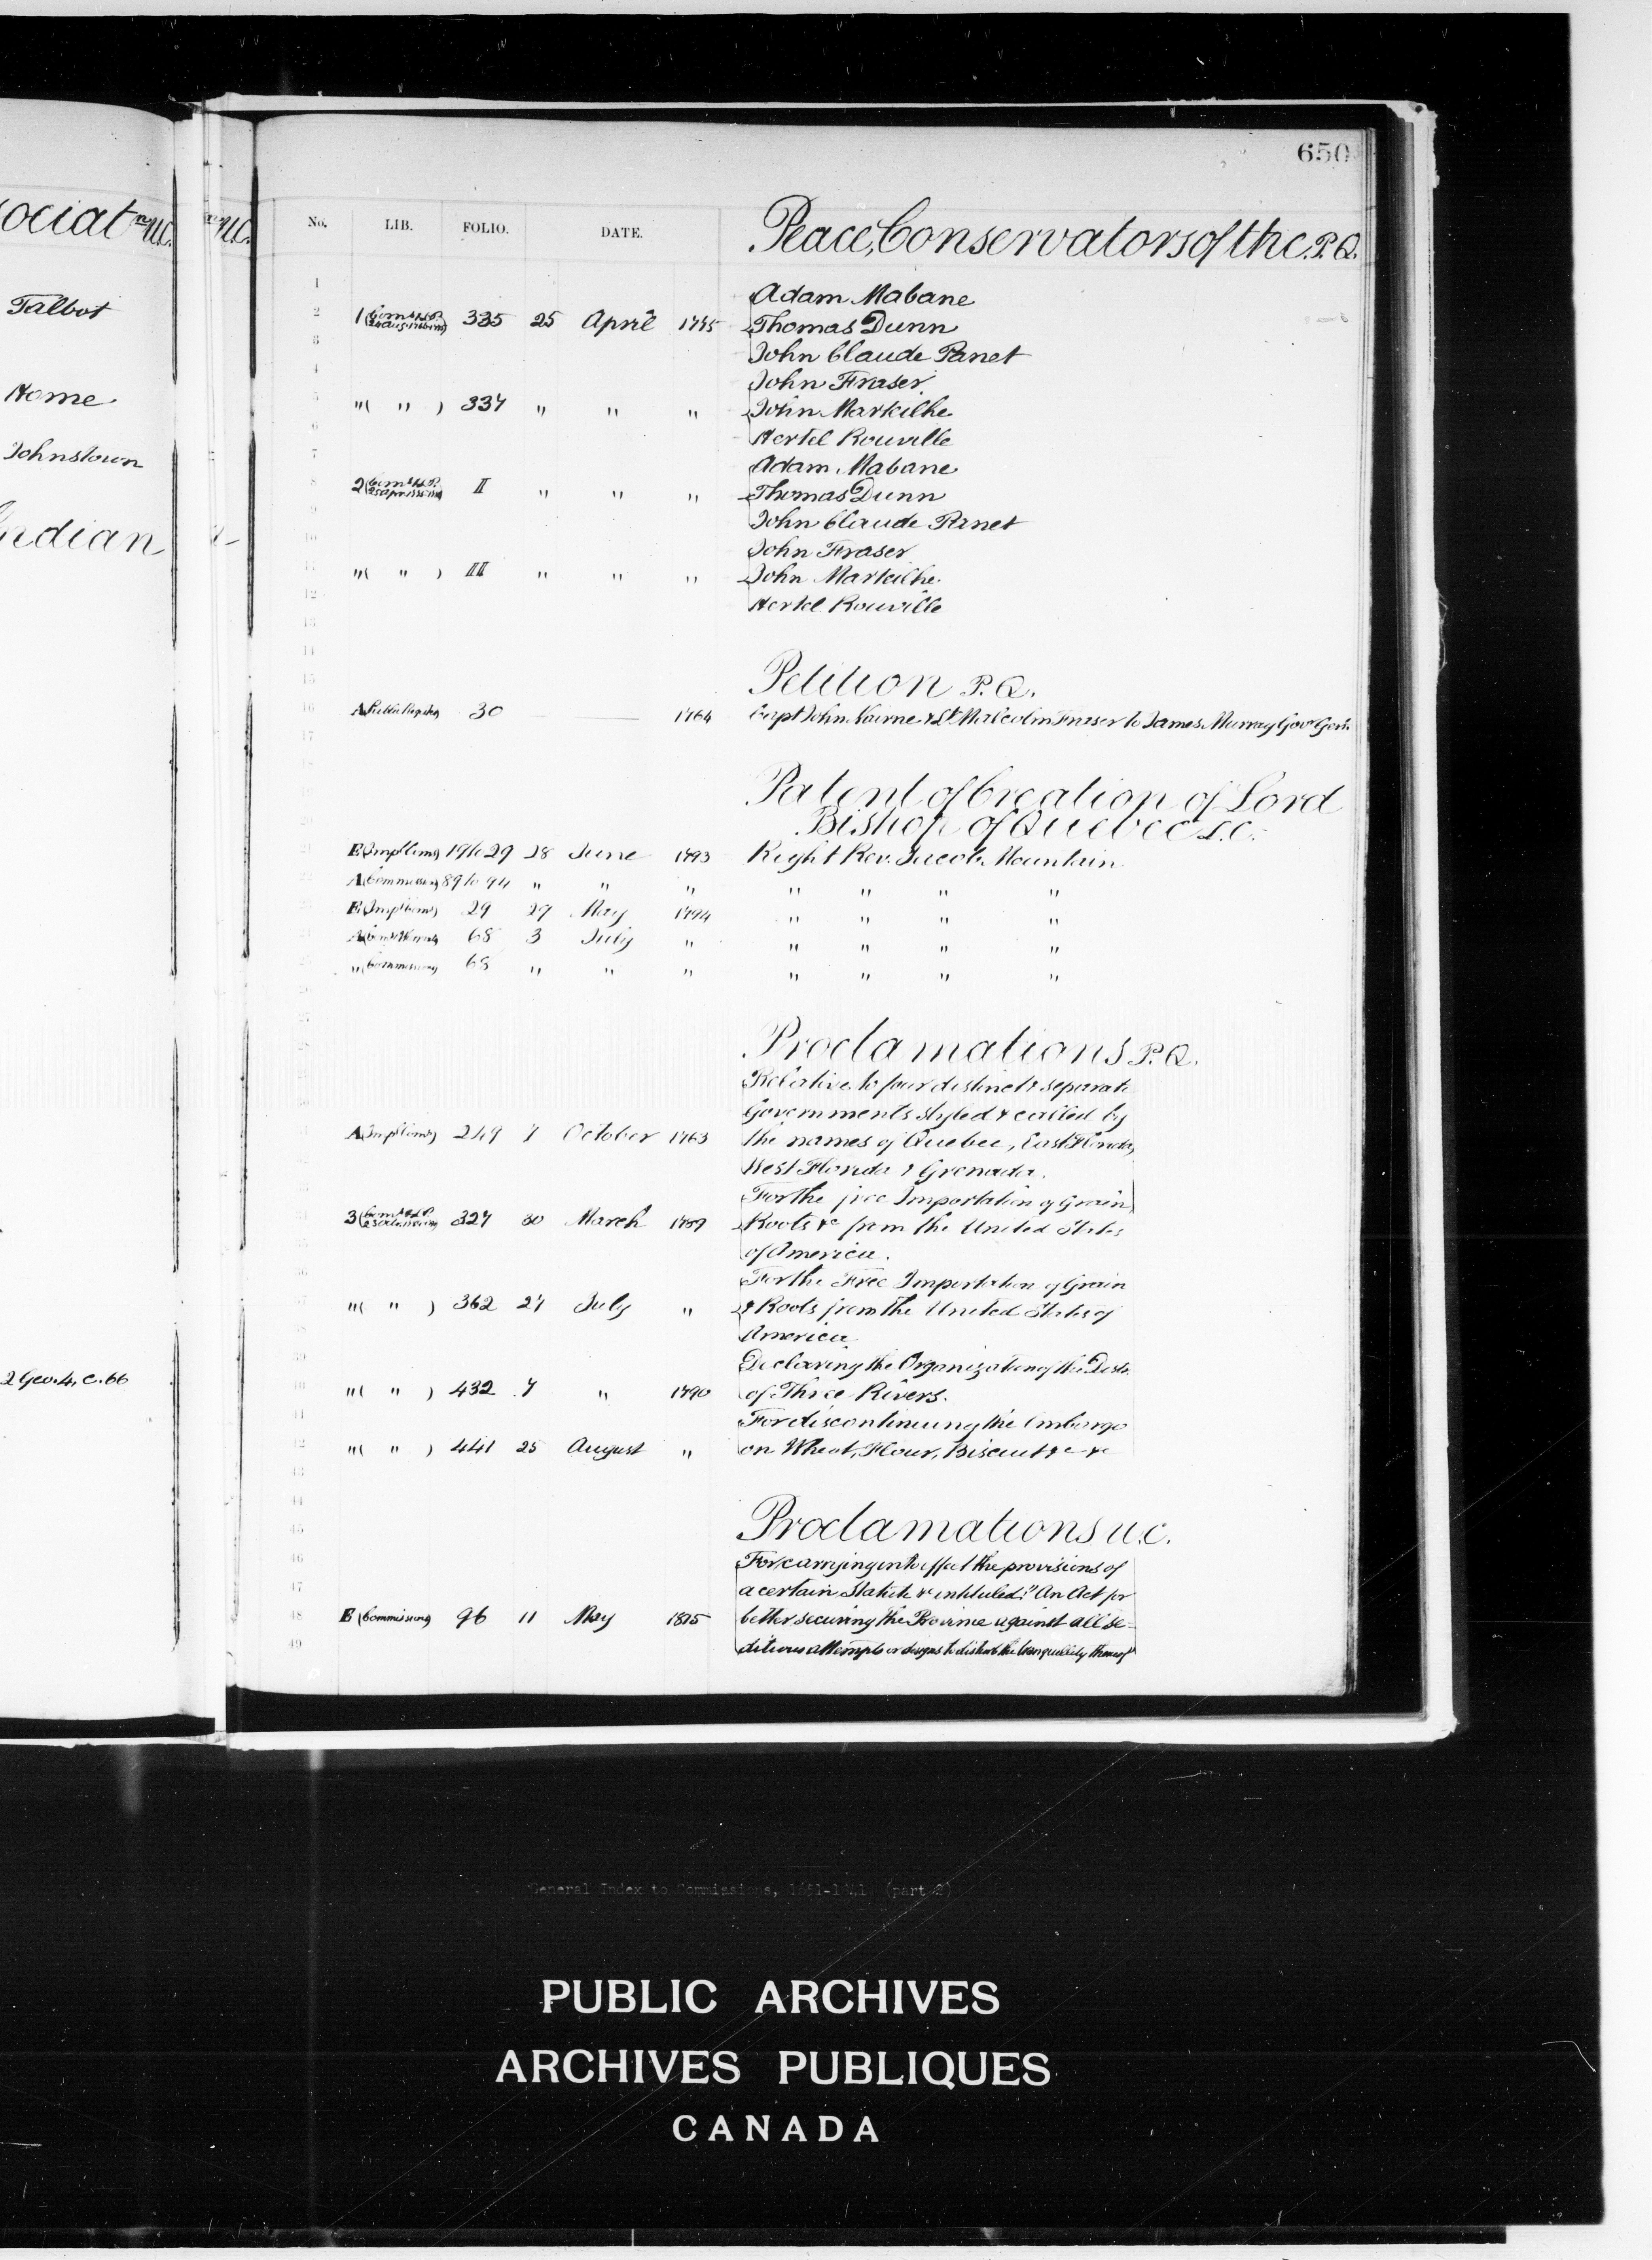 650
ociat n U.C.
n U.C.
Talbot
Home
Johnstown
Indian
2 Geo. 4, C. 66
No. LIB. FOLIO. DATE. Peace, Conservators of the P.Q.
Adam Mabane
1 335 25 April 1775 Thomas Dunn
John Claude Panet
John Fraser
"( " ) 337 " " " John Marteilhe
Hertel Rouville
Adam Mabane
2 II " " " Thomas Dunn
John Claude Panet
John Fraser
"( " ) III " " " John Marteilhe
Hertel Rouville
Petition P.Q.
A (Public Register) 30 1764 Capt John Nairne & Lt Malcolm Fraser to James Murray Govr Genl.
Patent of Creation of Lord
Bishop of Quebec L.C.
E (Impl Coms) 19 to 29 28 June 1793 Right Rev. Jacob Mountain
A (Commissions) 89 to 94 " " " " " " "
E (Impl Coms) 29 27 May 1794 " " " "
A 68 3 July " " " " "
" (Commissions) 68 " " " " " " "
Proclamations P.Q.
Relative to four distinct & separate
Governments styled & called by
A (Impl Coms) 249 7 October 1763 the names of Quebec, East Florida,
West Florida & Grenada.
For the free Importation of Grain
3 327 30 March 1789 Roots &c from the United States
of America.
For the Free Importation of Grain
"( " ) 362 27 July " & Roots from the United States of
America
Declaring the Organization of the Distr.
"( " ) 432 7 " 1790 of Three Rivers.
For discontinuing the Embargo
"( " ) 441 25 August " on Wheat, Flour, Biscuit &c &c
Proclamations U.C.
For carrying into effect the provisions of
a certain Statute &c intituled "An Act for
E (Commissions) 96 11 May 1815 better securing the Province against all se=
ditious attempts or designs to disturb the tranquillity thereof"
General Index to Commissions, 1651-1841 (part 2)
PUBLIC ARCHIVES
ARCHIVES PUBLIQUES
CANADA